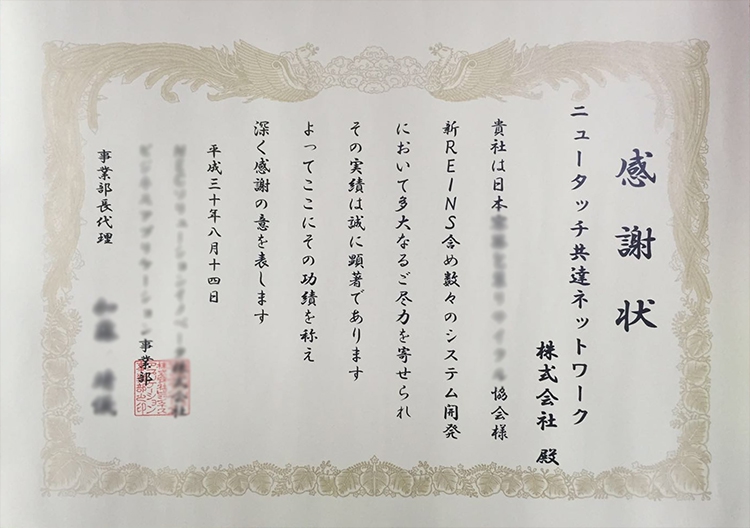 感謝状
ニュータッチ共達ネットワーク
株式会社 殿
貴社は日本 協会様
新REINS含め数々のシステム開発
において多大なるご尽力を寄せられ
その実績は誠に顕著であります
よってここにその功績を称え
深く感謝の意を表します
平成三十年八月十四日
事業部
事業部長代理